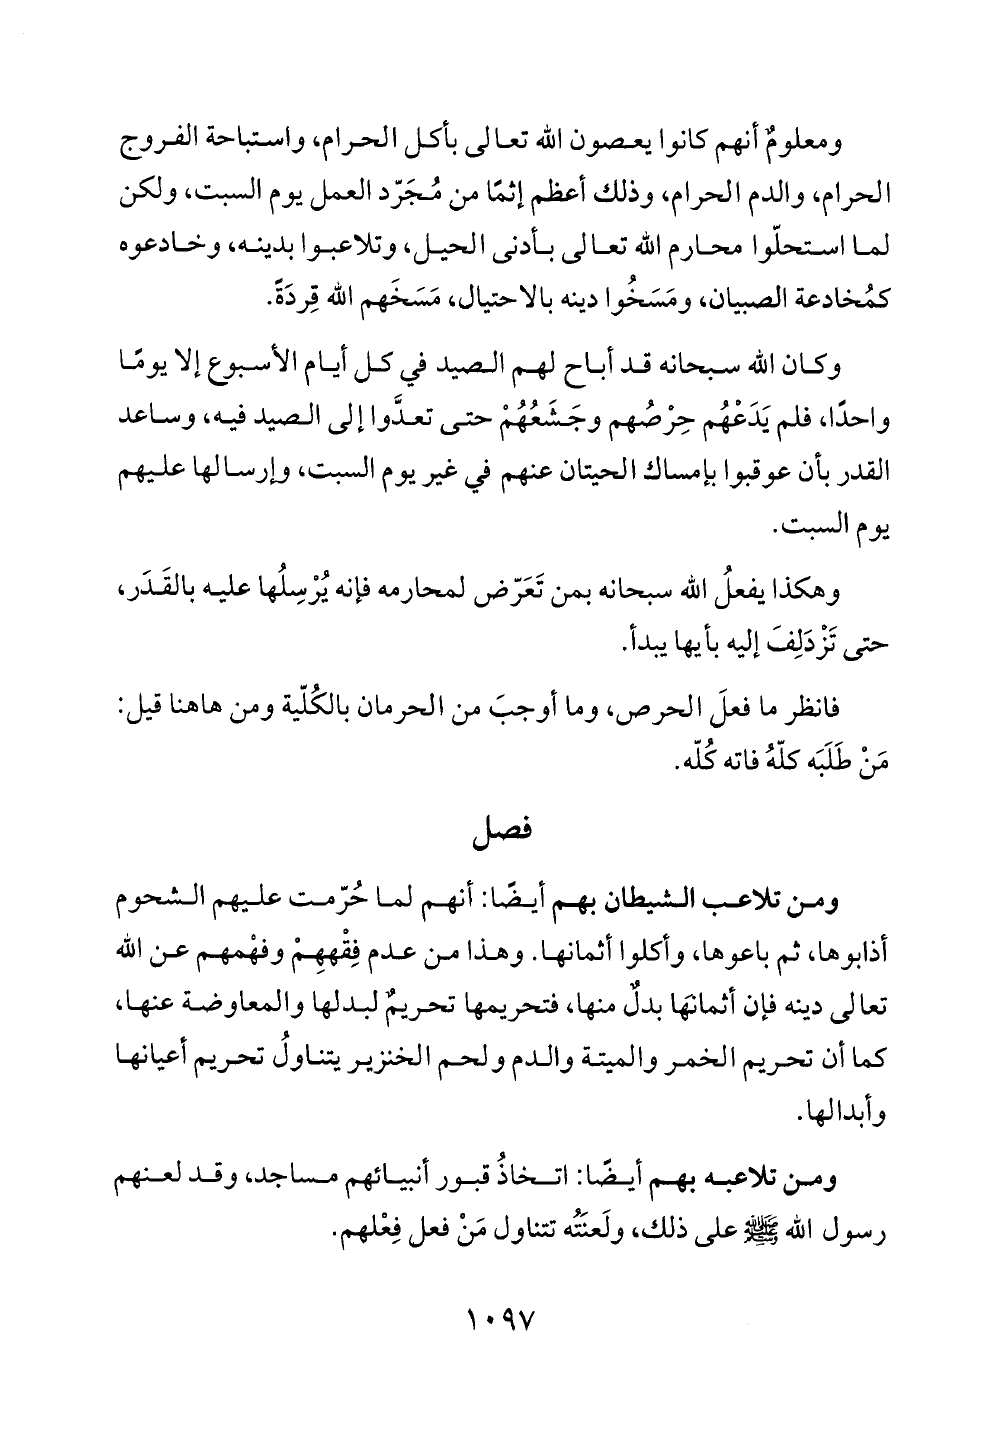 ومعلومٌ أنهم كانوا يعصون الله تعالى بأكل الحرام، واستباحة الفروج
الحرام، والدم الحرام، وذلك أعظم إثمًا من مُجَرّد العمل يوم السبت، ولكن
لما استحلّوا محارم الله تعالى بأدنى الحيل، وتلاعبوا بدينه، وخادعوه
كمُخادعة الصبيان، ومَسَخُوا دينه بالاحتيال، مَسَخَهم الله قِردَةً.
وكان الله سبحانه قد أباح لهم الصيد في كل أيام الأسبوع إلا يومًا
واحدًا، فلم يَدَعْهُم حِرْصُهم وجَشَعُهُمْ حتى تعدَّوا إلى الصيد فيه، وساعد
القدر بأن عوقبوا بإمساك الحيتان عنهم في غير يوم السبت، وإرسالها عليهم
يوم السبت.
وهكذا يفعلُ الله سبحانه بمن تَعَرّض لمحارمه فإنه يُرْسِلُها عليه بالقَدَر،
حتى تَزْدَلِفَ إليه بأيها يبدأ.
فانظر ما فعلَ الحرص، وما أوجبَ من الحرمان بالكُلّية ومن هاهنا قيل:
مَنْ طَلَبَه كلّهُ فاته كُلّه.
فصل
ومن تلاعب الشيطان بهم أيضًا: أنهم لما حُرّمت عليهم الشحوم
أذابوها، ثم باعوها، وأكلوا أثمانها. وهذا من عدم فِقْههِمْ وفهْمهم عن الله
تعالى دينه فإن أثمانهَا بدلٌ منها، فتحريمها تحريمٌ لبدلها والمعاوضة عنها،
كما أن تحريم الخمر والميتة والدم ولحم الخنزير يتناولُ تحريم أعيانها
وأبدالها.
ومن تلاعبه بهم أيضًا: اتخاذُ قبور أنبيائهم مساجد، وقد لعنهم
رسول الله ﷺ على ذلك، ولَعنَتُه تتناول مَنْ فعل فِعْلهم.
١٠٩٧